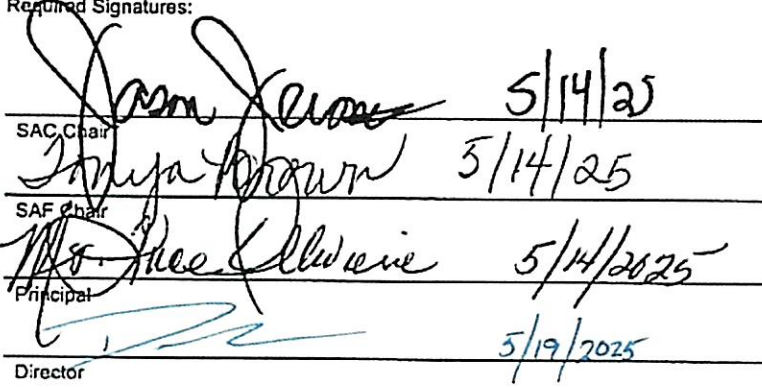 Required Signatures:
Jason 5/14/25
SAC Chair
Tonya Brown 5/14/25
SAF Chair
5/14/2025
Principal
5/19/2025
Director